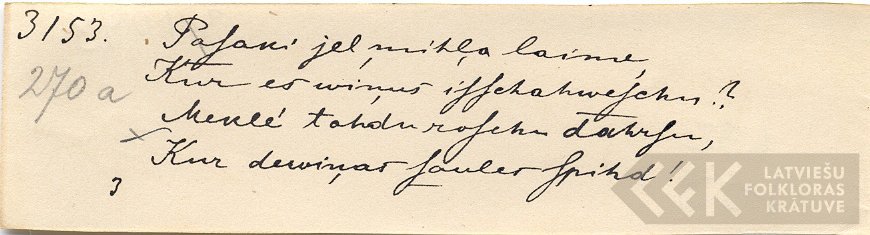 3153. Paſaki jel, mihļa laime,
270a Kur es wiņus iſſchahweſchu??
Meklē tahdu roſchu dahrſu,
Kur dewiņas ſaules ſpihd!
3
LATVIEŠU
FOLKLORAS
KRĀTUVE